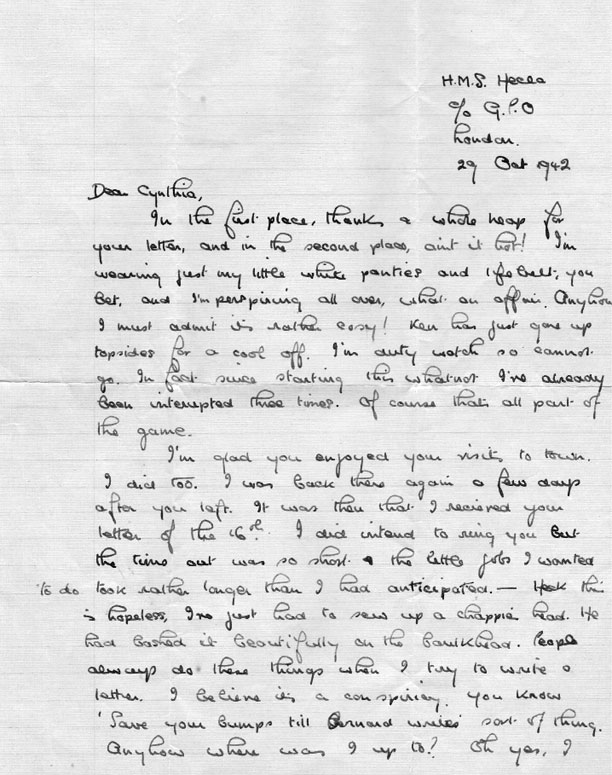 H.M.S. Hecla
c/o G.P.O
London.
29 Oct 1942
Dear Cynthia,
In the first place, thanks a whole heap for
your letter, and in the second place, aint it hot! I'm
wearing just my little white panties and lifebelt, you
bet, and I'm perspiring all over, what an affair. Anyhow
I must admit its rather cosy! Ken has just gone up
topsides for a cool off. I'm duty watch so cannot
go. In fact since starting this whatnot I've already
been interupted three times. Of course thats all part of
the game.
I'm glad you enjoyed your visits to town.
I did too. I was back there again a few days
after you left. It was then that I recieved your
letter of the 16th. I did intend to ring you but
the time out was so short & the little jobs I wanted
to do took rather longer than I had anticipated. — Heck this
is hopeless, I've just had to sew up a chappies head. He
had bashed it beautifully on the baulkhead. People
always do these things when I try to write a
letter. I believe its a conspiricy. You know
'Save your bumps till Bernard writes' sort of thing.
Anyhow where was I up to? Oh yes, I